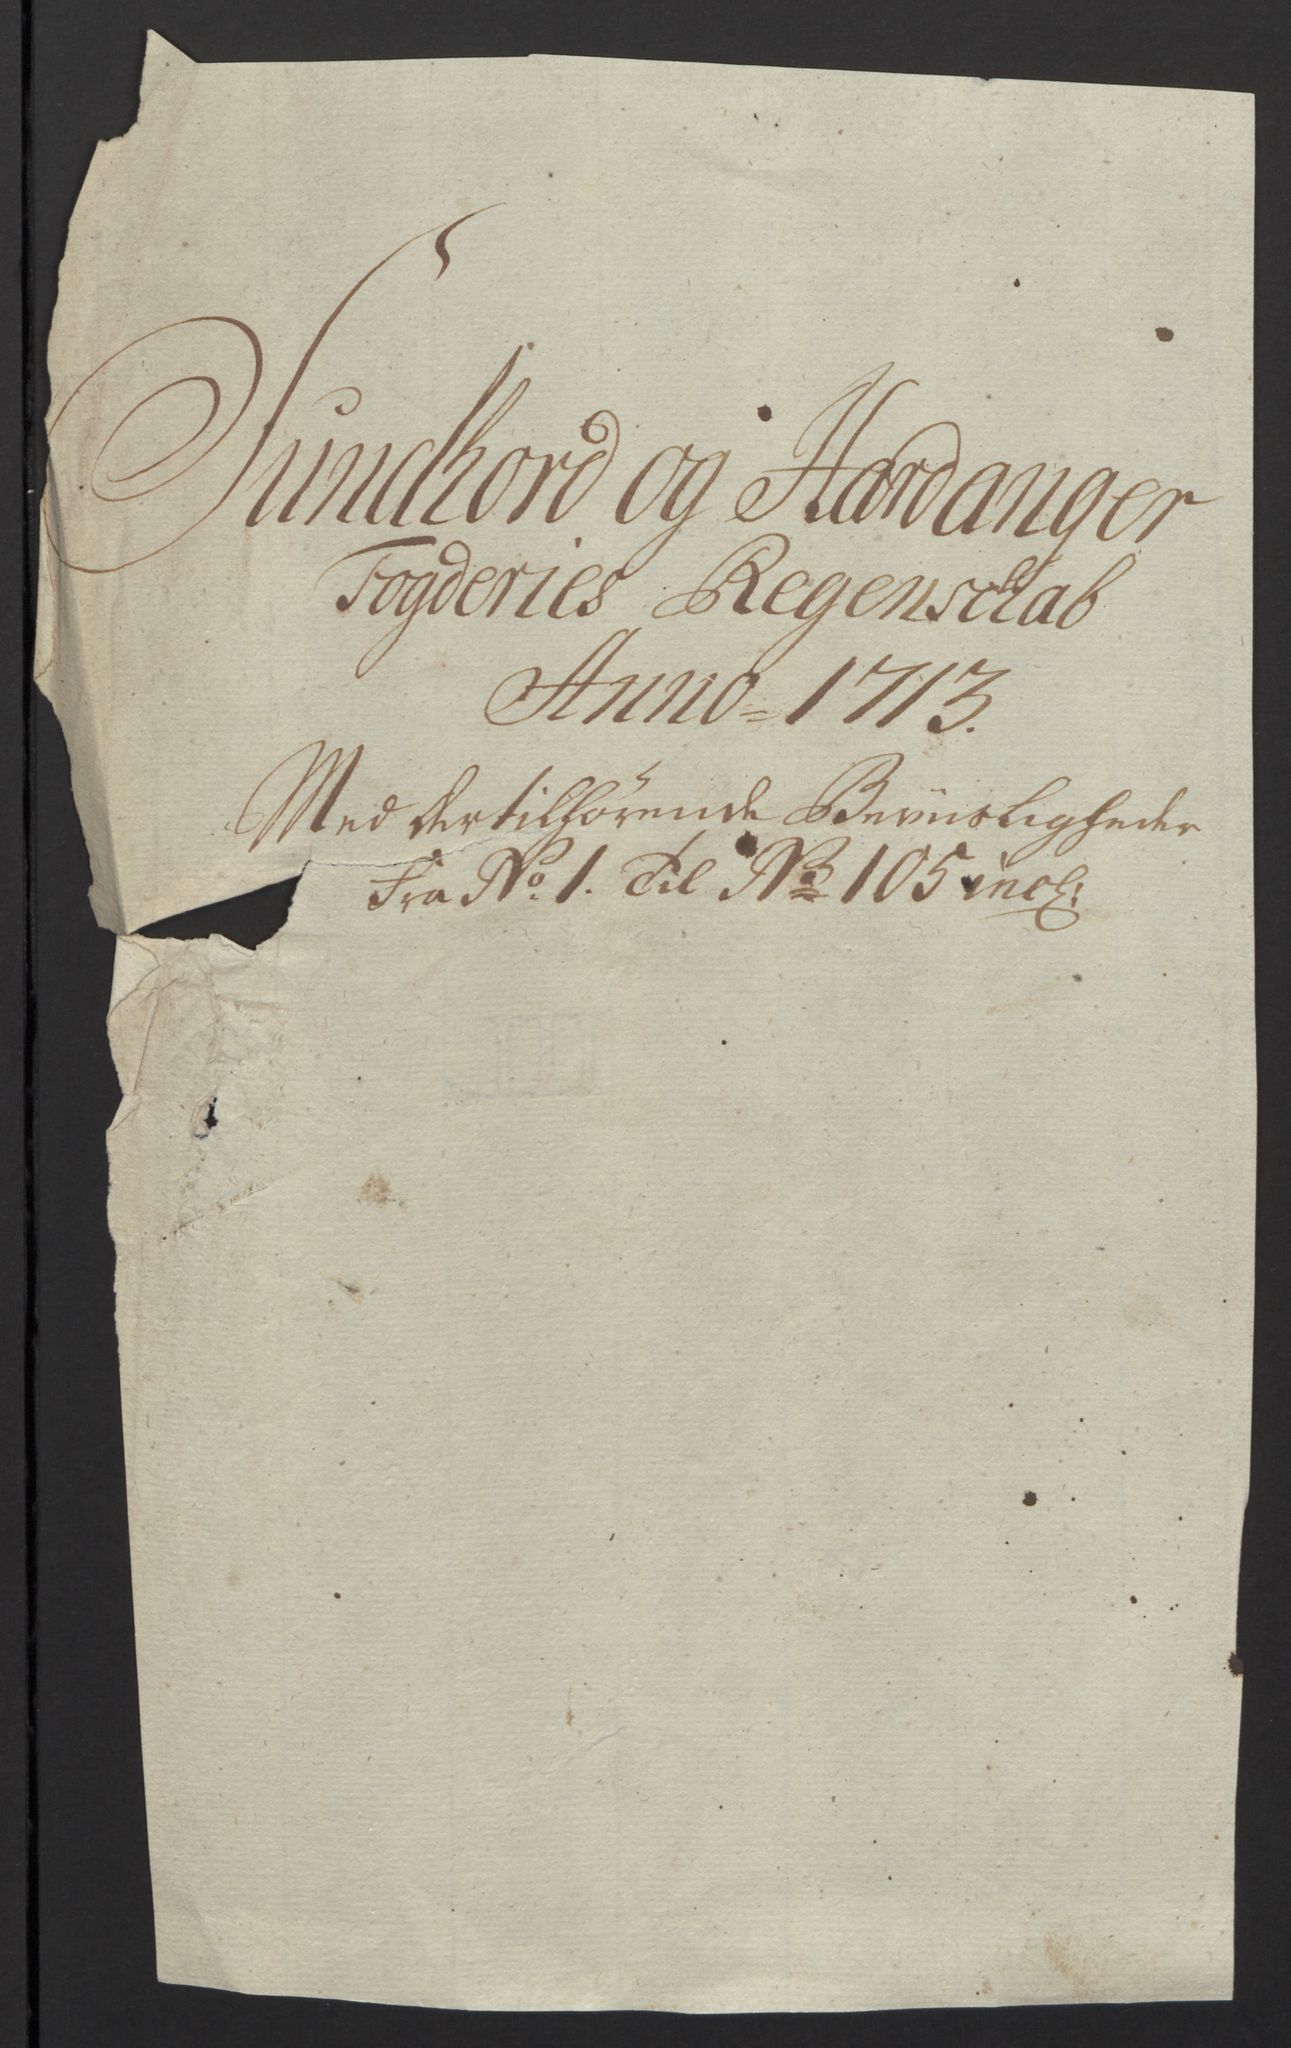 Sundhord og Hardanger
Fogderies Regenschab
Anno = 1713.
Med dertilhørende Beviisligheder
Fra No. 1. Til No 105 incl: